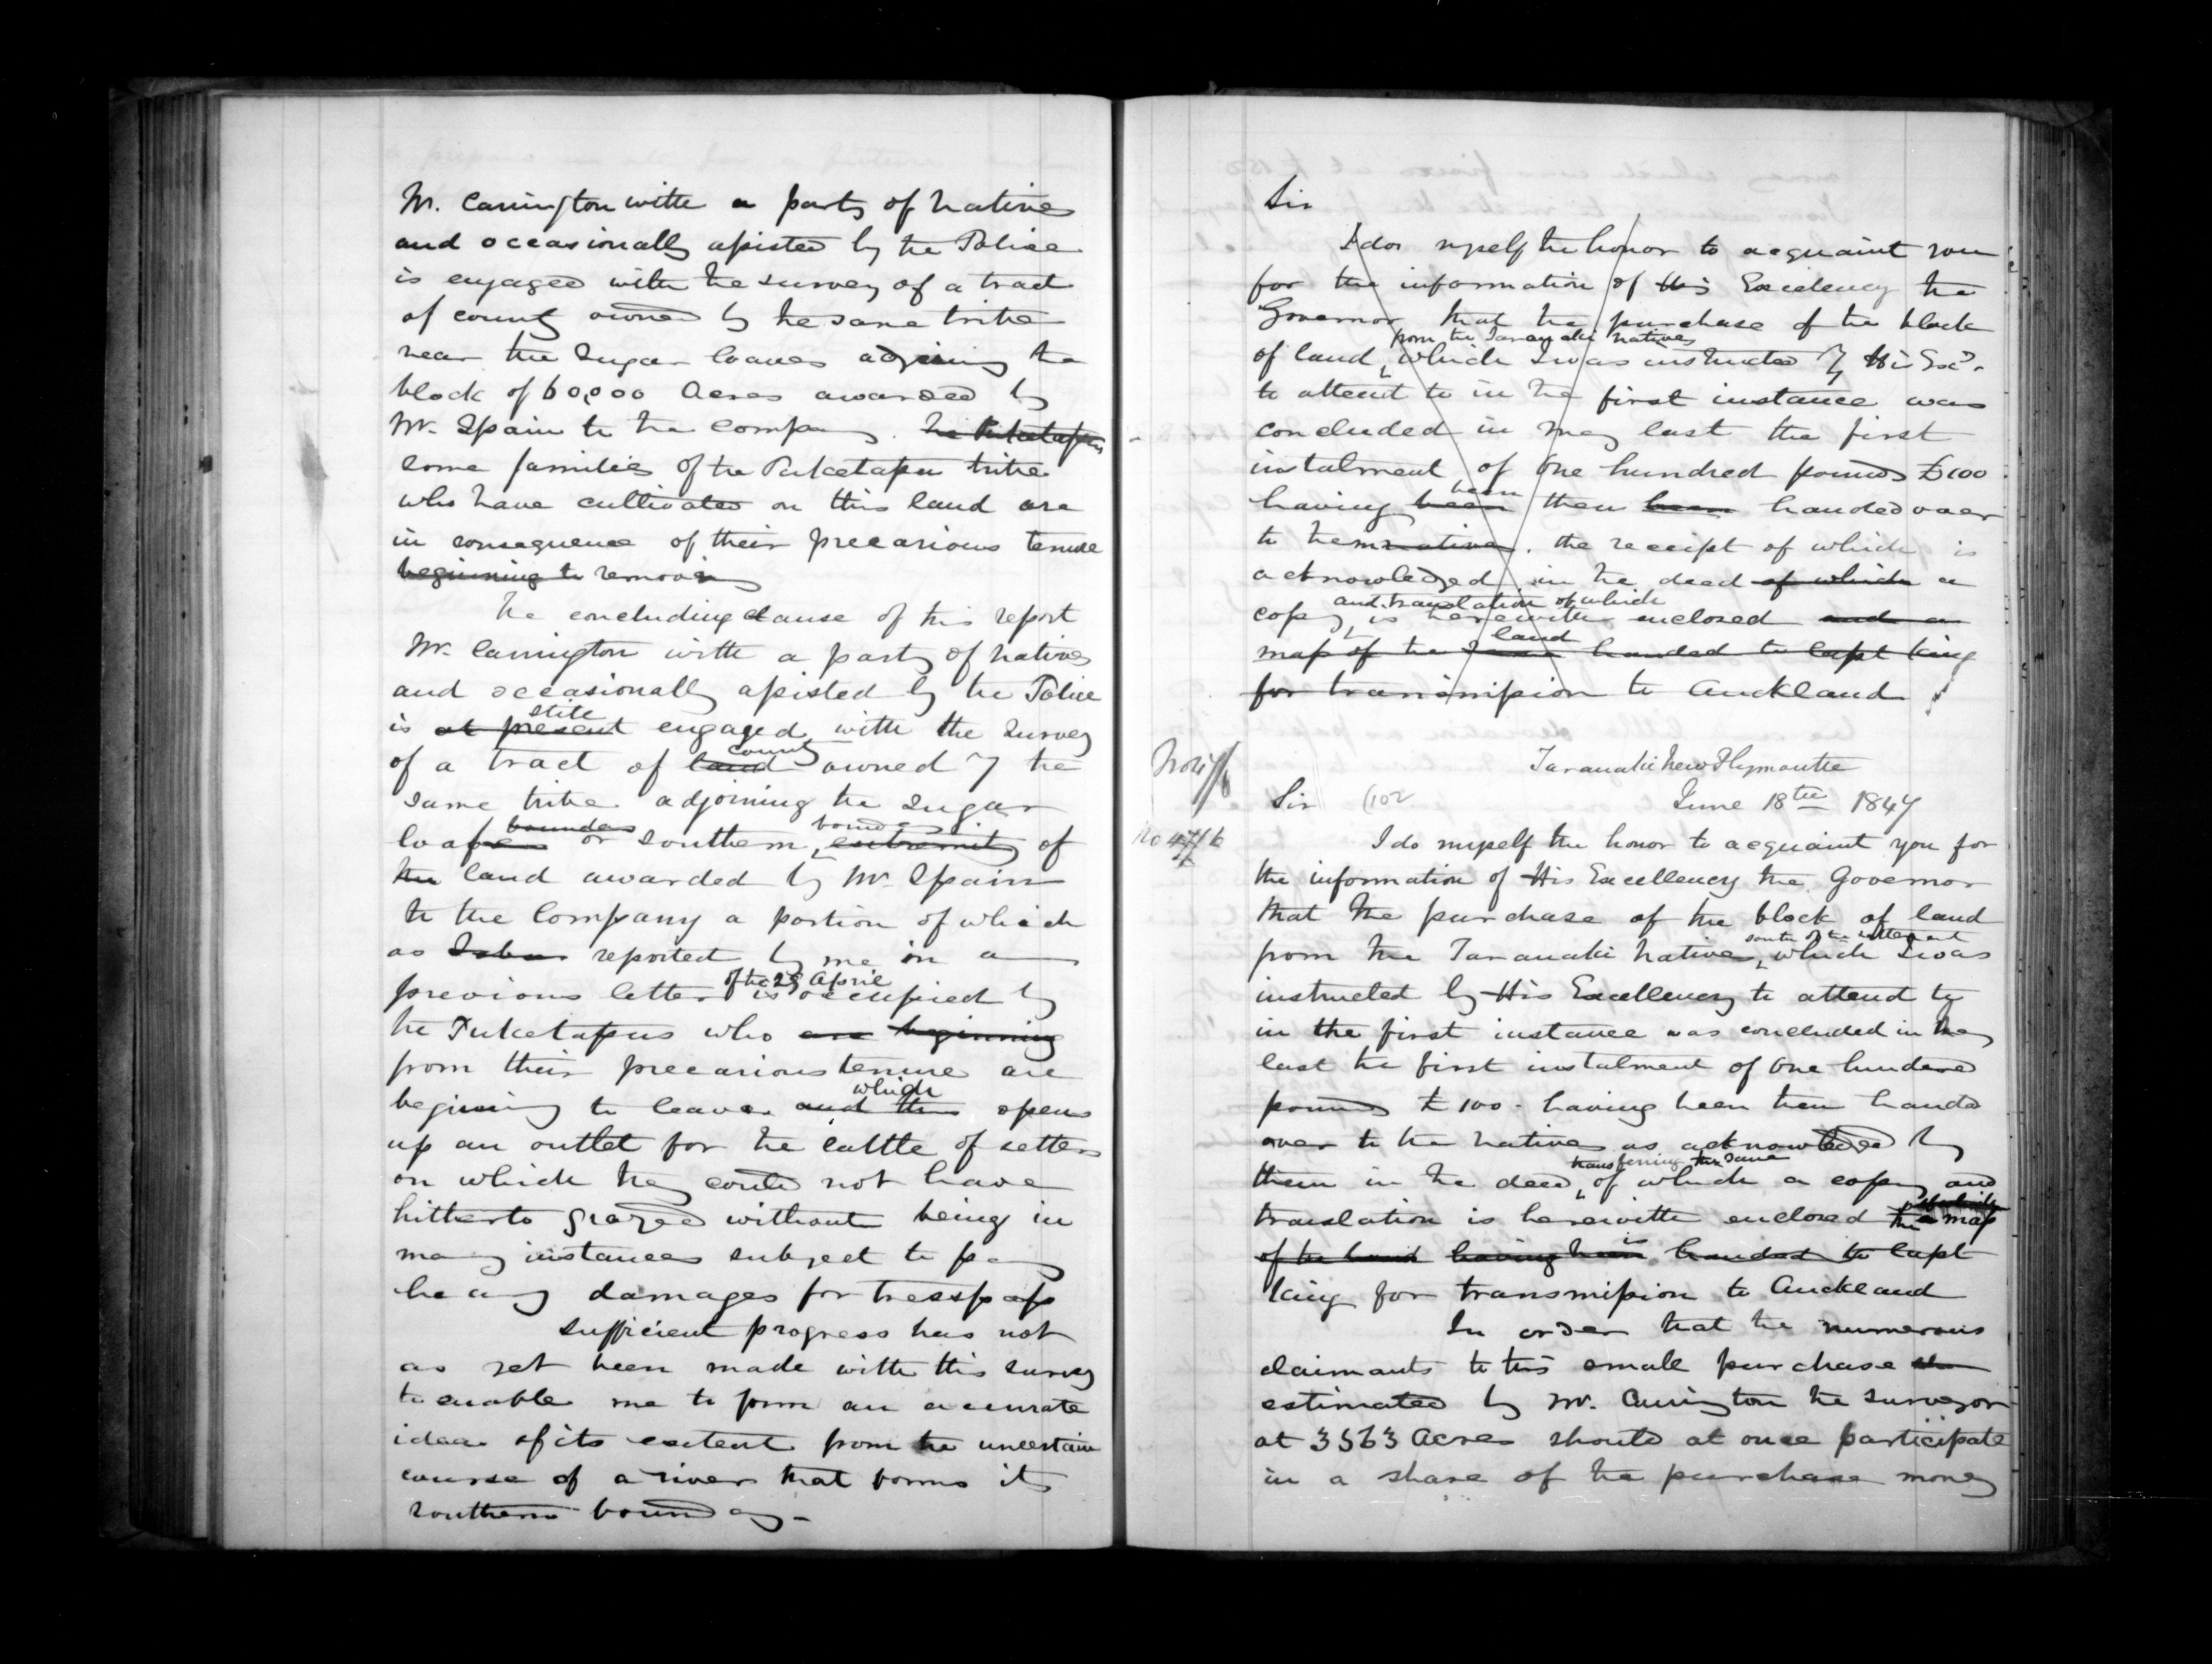 Mr. Carrington with a party of natives
and occasionally assisted by the Police
is engaged with the survey of a tract
of county owned by the same tribe
near the Sugar loaves adjoining the
block of 60,000 Acres awarded by
Mr. Spain to the Company. the Puketapus
some families of the Puketapu tribe
who have cultivated on this land are
in consequence of their precarious tenure
beginning to removing
The concluding clause of this report
Mr. Carrington with a party of natives
and occasionally assisted by the Police
still
is at present engaged with the survey
county
of a tract of land owned by the
same tribe adjoining the Sugar
boundary
loaves or southern extremity of
the land awarded by Mr. Spain
to the Company a portion of which
as reported by me in a
of the 29 April
previous letter is occupied by
the Puketapus who are beginning
from their precarious tenure are
which
beginning to leave and thus opens
up an outlet for the cattle of settlers
on which they could not have
hitherto grazed without being in
many instances subject to pay
heavy damages for tresspass
Sufficient progress has not
as yet been made with this survey
to enable me to form an accurate
idea of its extent from the uncertain
course of a river that forms its
southern boundary -
Sir
I do myself the honor to acquaint you
for the information of His Excellency the
Governor that the purchase of the block
from the Taranaki natives
of land, which I was instructed by His Excy.
to attend to in the first instance was
concluded in May last the first
instalment of One hundred pounds £100
been
having been then been handed over
to them natives. the receipt of which is
acknowledged in the deed of which a
and translation of which
copy is herewith enclosed and a
land
map of the handed to Capt King
for transmission to Auckland
Taranaki New Plymouth
Sir (102 June 18th 1847
No 47/6
I do myself the honor to acquaint you for
the information of His Excellency the Governor
that the purchase of the block of land
south of the settlement
from the Taranaki Natives, which I was
instructed by His Excellency to attend to
in the first instance was concluded in May
last the first instalment of One hundred
pounds £100. having been then handed
over to the natives as acknowledged by
transferring the same
them in the deed, of which a copy and
of which
translation is herewith enclosed the a map
is
of the land having been handed to Capt
King for transmission to Auckland
In order that the numerous
claimants to this small purchase
estimated by Mr. Carrington the surveyor
at 3563 Acres should at once participate
in a share of the purchase money